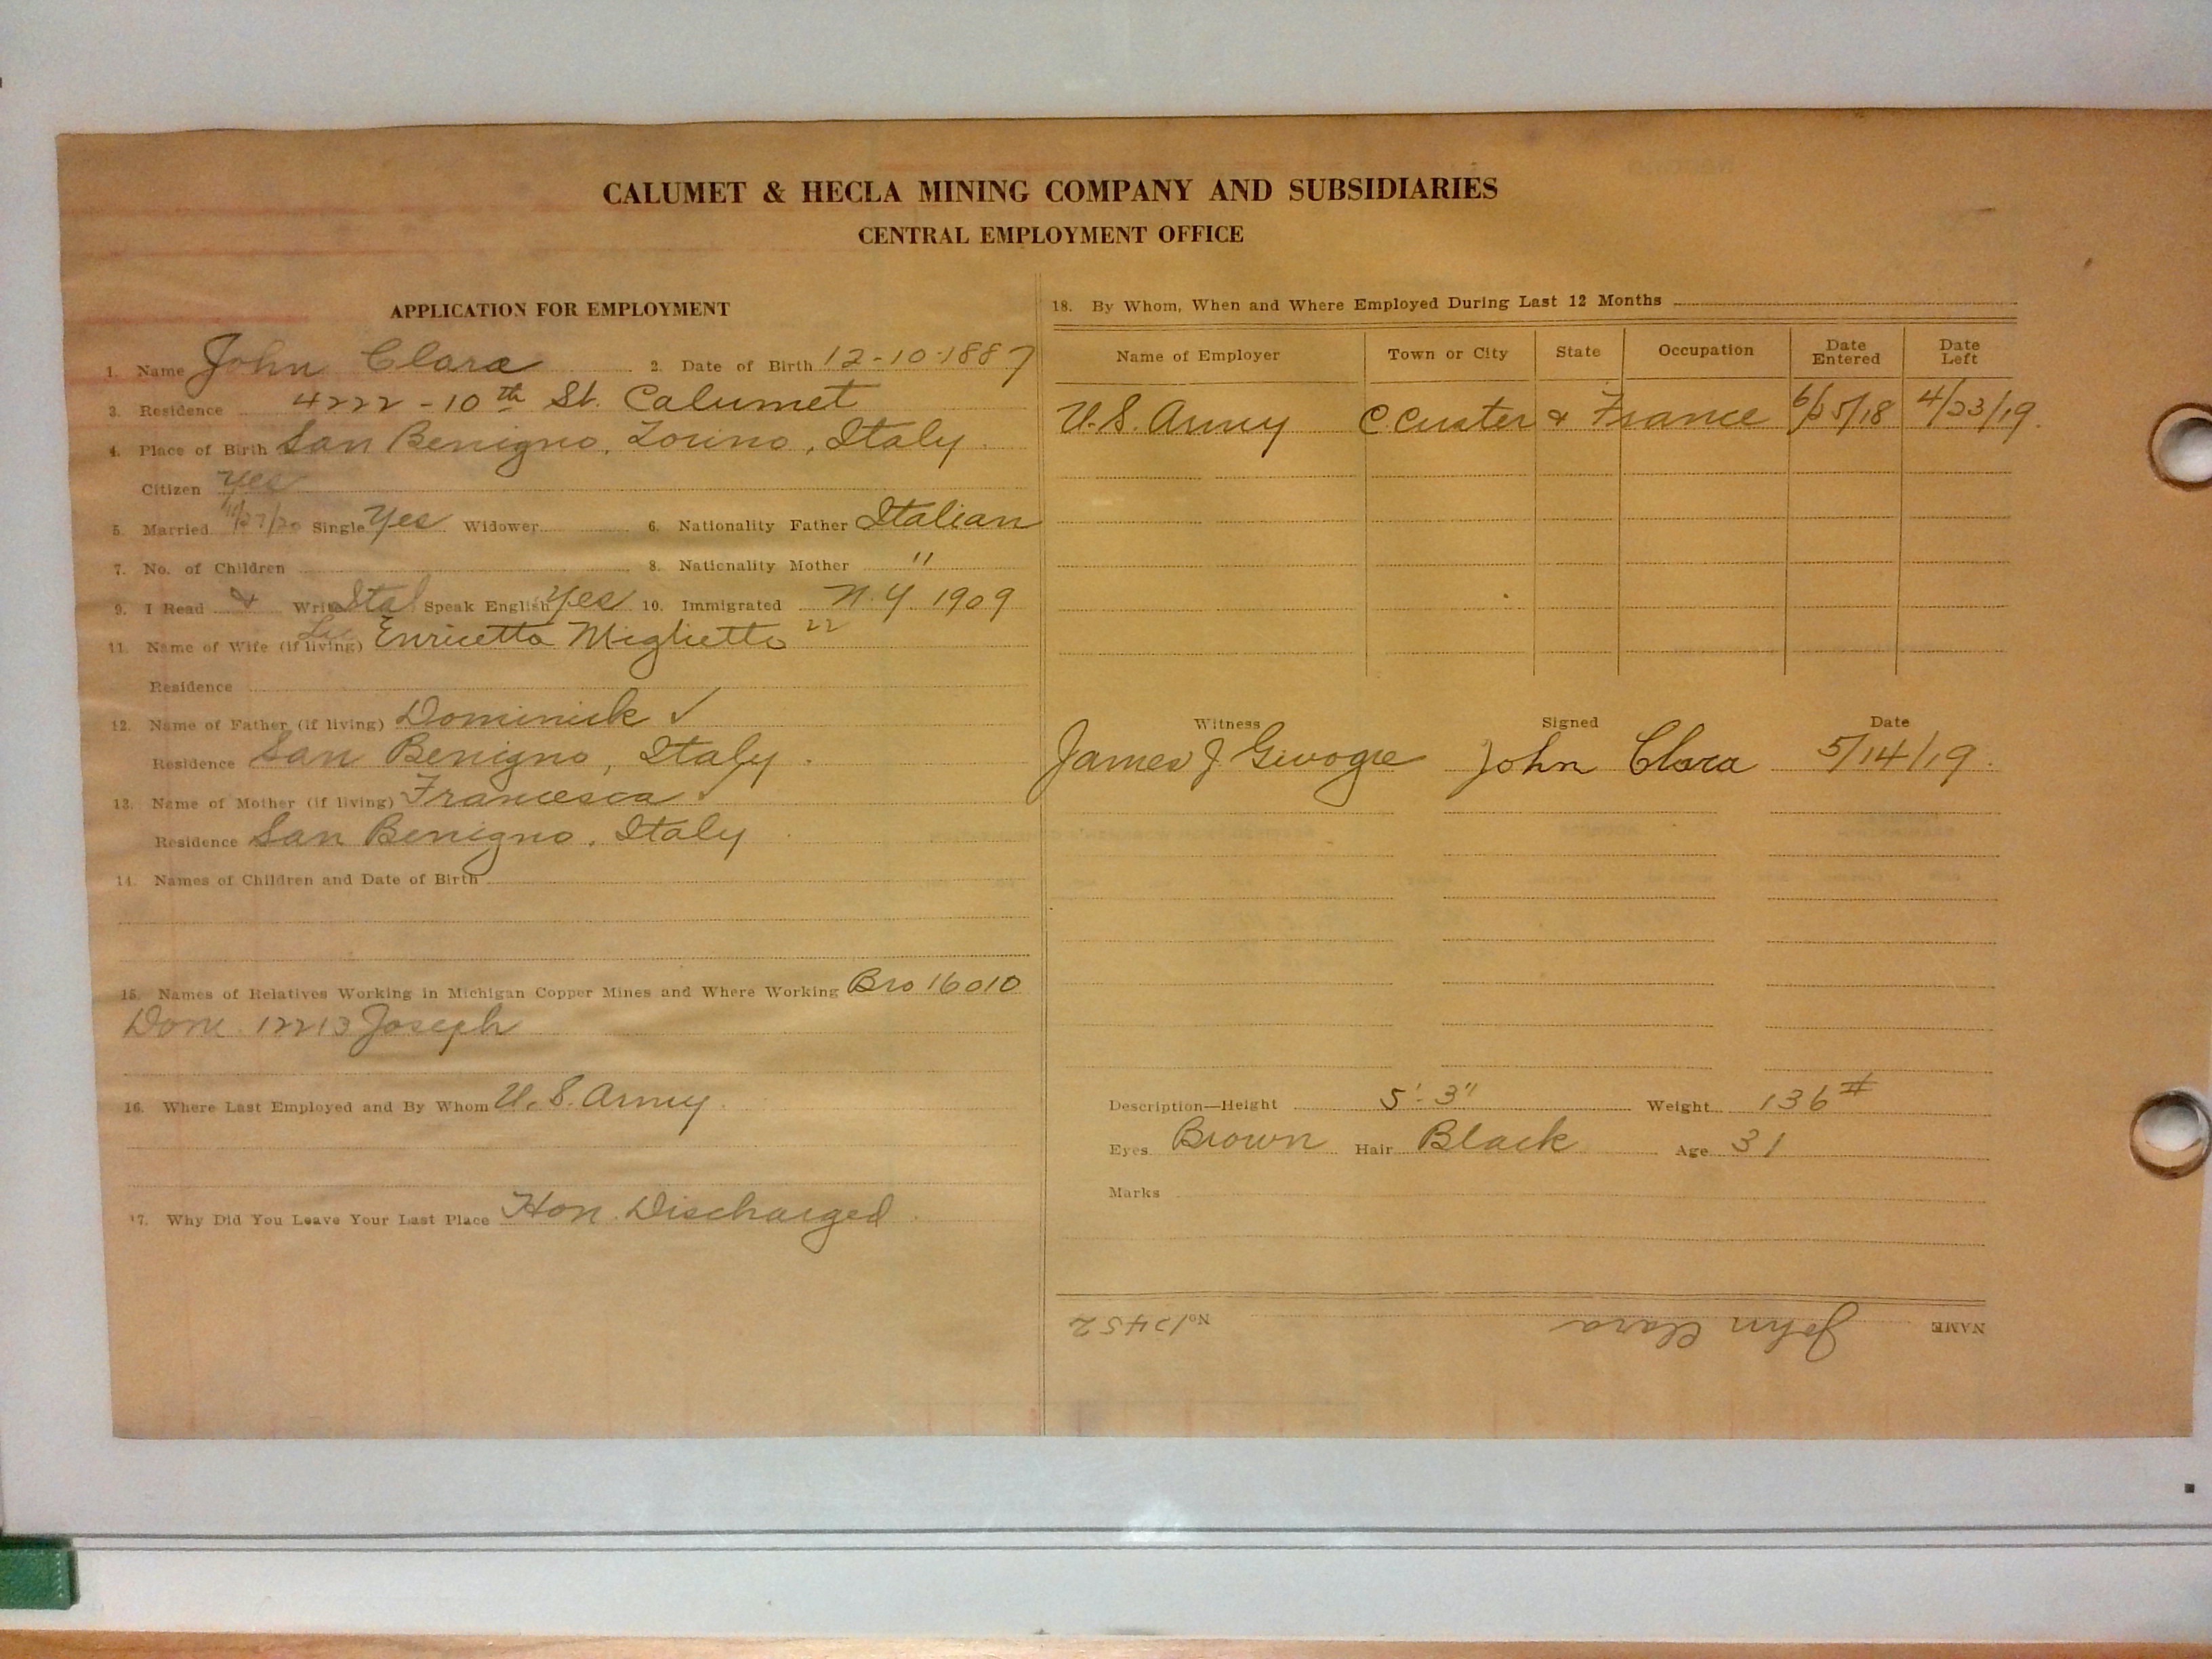 CALUMET & HECLA MINING COMPANY AND SUBSIDIARIES
CENTRAL EMPLOYMENT OFFICE
APPLICATION FOR EMPLOYMENT
1. Name John Clara 2. Date of Birth 12-10-1887
3. Residence 4222-10th St. Calumet
4. Place of Birth San Benigno, Torino, Italy
Citizen Yes
5. Married /27/20 Single Yes Widower 6. Nationality Father Italian
7. No. of Children 8. Nationality Mother "
9. I Read & Write Ital Speak English Yes 10. Immigrated N.Y 1909
11. Name of Wife (if living) Enricetta Miglietto 22
Residence
12. Name of Father (if living) Dominick ✓
Residence San Benigno, Italy.
13. Name of Mother (if living) Francesca ✓
Residence San Benigno, Italy
14. Names of Children and Date of Birth
15. Names of Relatives Working in Michigan Copper Mines and Where Working Bro 16010
Dom 12213 Joseph
16. Where Last Employed and By Whom U.S. Army.
17. Why Did You Leave Your Last Place Hon. Discharged.
18. By Whom, When and Where Employed During Last 12 Months
Name of Employer Town or City State Occupation Date Entered Date Left
U.S. Army C. Custer & France 6/25/18 4/23/19.
Witness Signed Date
James J John Clara 5/14/19.
Description—Height 5'-3" Weight 136#
Eyes Brown Hair Black Age 31
Marks
NAME John Clara No. 12452